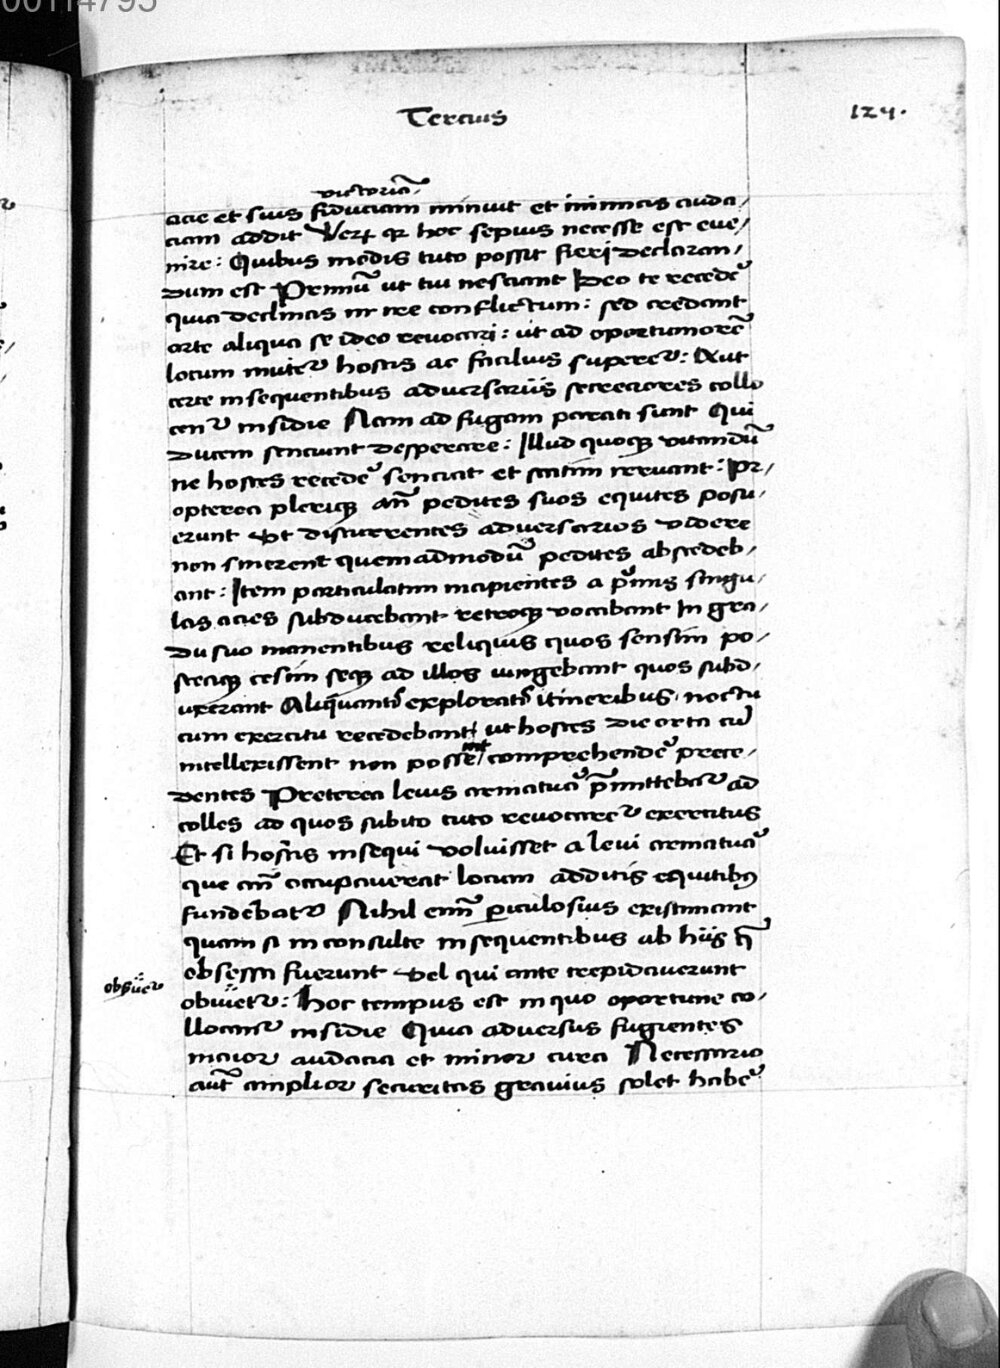 00114795
Tercius
124.
victoriā
acie et suis fiduciam minuit et inimicis auda/
ciam addit Verꝫ qꝛ hoc sepius necesse est eue/
nire: Quibus modis tuto possit fieri declaran/
dum est Primū ut tui nesciant Ideo te recedeꝰ
quia declinas inire conflictum: sed credant
arte aliqua se ideo reuocari: ut ad oportuniorē
locum inuiteꝰ hostis ac facilius supereꝰ: Aut
certe insequentibus aduersariis secreciores collo
cenꝰ insidie Nam ad fugam parati sunt Qui
ducem senciunt desperare: Illud quoqꝫ vitandū
ne hostes recedeꝰ senciat et statim irruant: Pr/
opterea pleriqꝫ an̄ pedites suos equites posu/
erunt Vt discurrentes aduersarios videre
non sinerent quemadmodū pedites abscedeb/
ant: Item particulatim incipientes a pͥmis singu/
las acies subducebant retroqꝫ vocabant In gra/
du suo manentibus reliquis quos sensim po/
steaqꝫ cesim seqꝫ ad illos iungebant quos subd/
uxerant Aliquanti exploratis itineribus noctu
cum exercitu recedebant ut hostes die orta cū
intellexissent non posse/nt comprehendeꝰ prece/
dentes Preterea leuis armatuaꝰ p̄mittebaꝰ ad
colles ad quos subito tuto reuocareꝰ exercitus
Et si hostis insequi voluisset a leui armatuaꝰ
que an̄ occupauerat locum additis equitibꝰ
fundebatꝰ Nihil enī ꝑiculosius existimant
quam si inconsulte insequentibus ab hiis q̄
obsessa fuerunt vel qui ante trepidauerunt
obsiueꝰ
obuietꝰ: Hoc tempus est in quo oportune co/
llocanꝰ insidie Quia aduersus fugientes
maior audacia et minor cura Necessario
aut̄ amplior securitas grauius solet habeꝰ